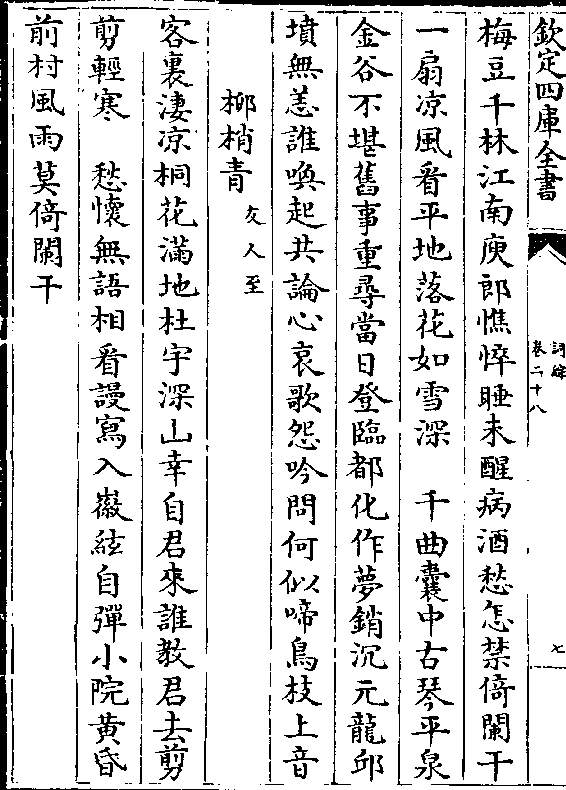 欽定四庫全書
詞綜
卷二十八
七
梅豆千林江南庾郎憔悴睡未醒病酒愁怎禁倚闌干
一扇涼風看平地落花如雪深　千曲囊中古琴平泉
金谷不堪舊事重尋當日登臨都化作夢銷沉元龍邱
墳無恙誰喚起共論心哀歌怨吟問何似啼鳥枝上音
柳梢青 友人至
客裏淒凉桐花滿地杜宇深山幸自君來誰教君去剪
剪輕寒　愁懷無語相看謾寫入徽絃自彈小院黄昏
前村風雨莫倚闌干